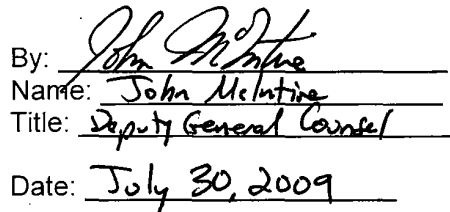 By: John McIntire
Name: John McIntire
Title: Deputy General Counsel
Date: July 30, 2009